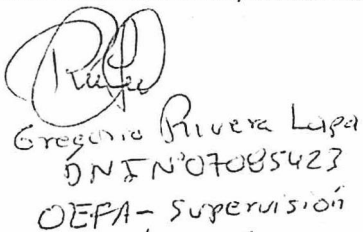 Gregorio Rivera Lapa
DNI N°07085423
OEFA - Supervisión